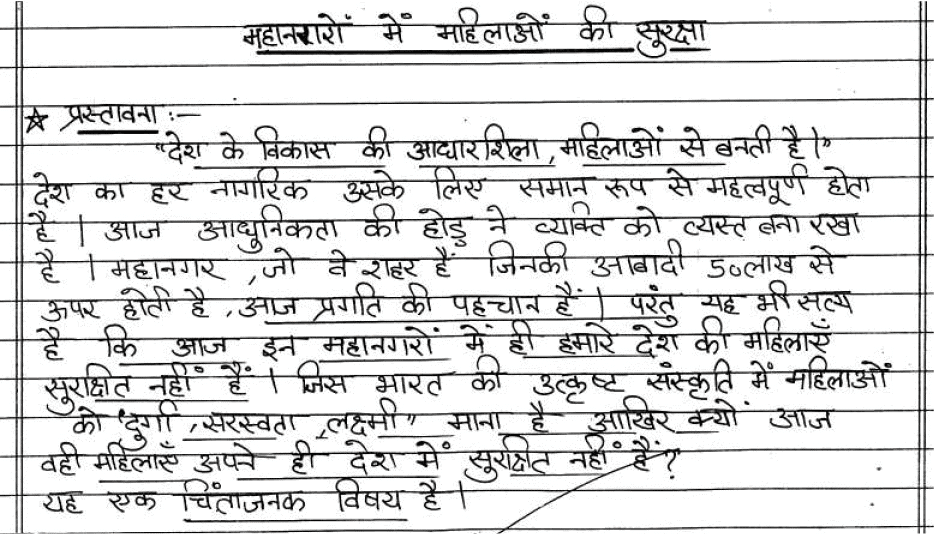 महानगरों में महिलाओं की सुरक्षा
☆ प्रस्तावना :-
"देश के विकास की आधारशिला, महिलाओं से बनती है।"
देश का हर नागरिक उसके लिए समान रूप से महत्वपूर्ण होता
है। आज आधुनिकता की होड़ ने व्यक्ति को व्यस्त बना रखा
है। महानगर, जो वे शहर हैं जिनकी आबादी 50लाख से
ऊपर होती है, आज प्रगति की पहचान हैं। परंतु यह भी सत्य
है कि आज इन महानगरों में ही हमारे देश की महिलाएँ
सुरक्षित नहीं हैं। जिस भारत की उत्कृष्ट संस्कृति में महिलाओं
को "दुर्गा, सरस्वता, लक्ष्मी" माना है आखिर क्यों आज
वही महिलाएँ अपने ही देश में सुरक्षित नहीं हैं?
यह एक चिंताजनक विषय है।